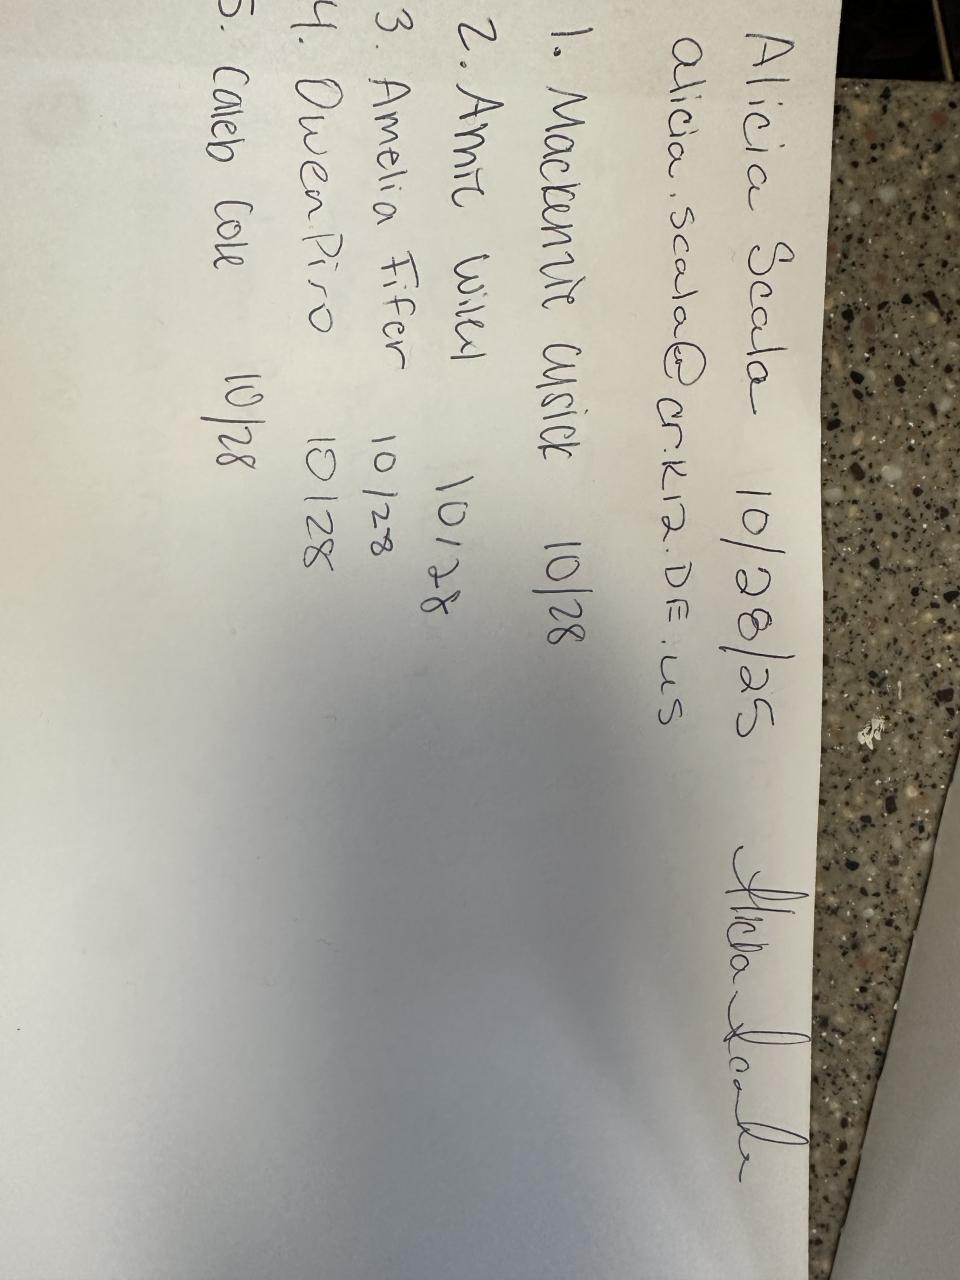 Alicia Scala 10/28/25 Alicia Scala
alicia.scala@cr.K12.DE.us
1. Mackenzie Cusick 10/28
2. Annie 10/28
3. Amelia Fifer 10/28
4. Owen Piro 10/28
5. Caleb Cole 10/28